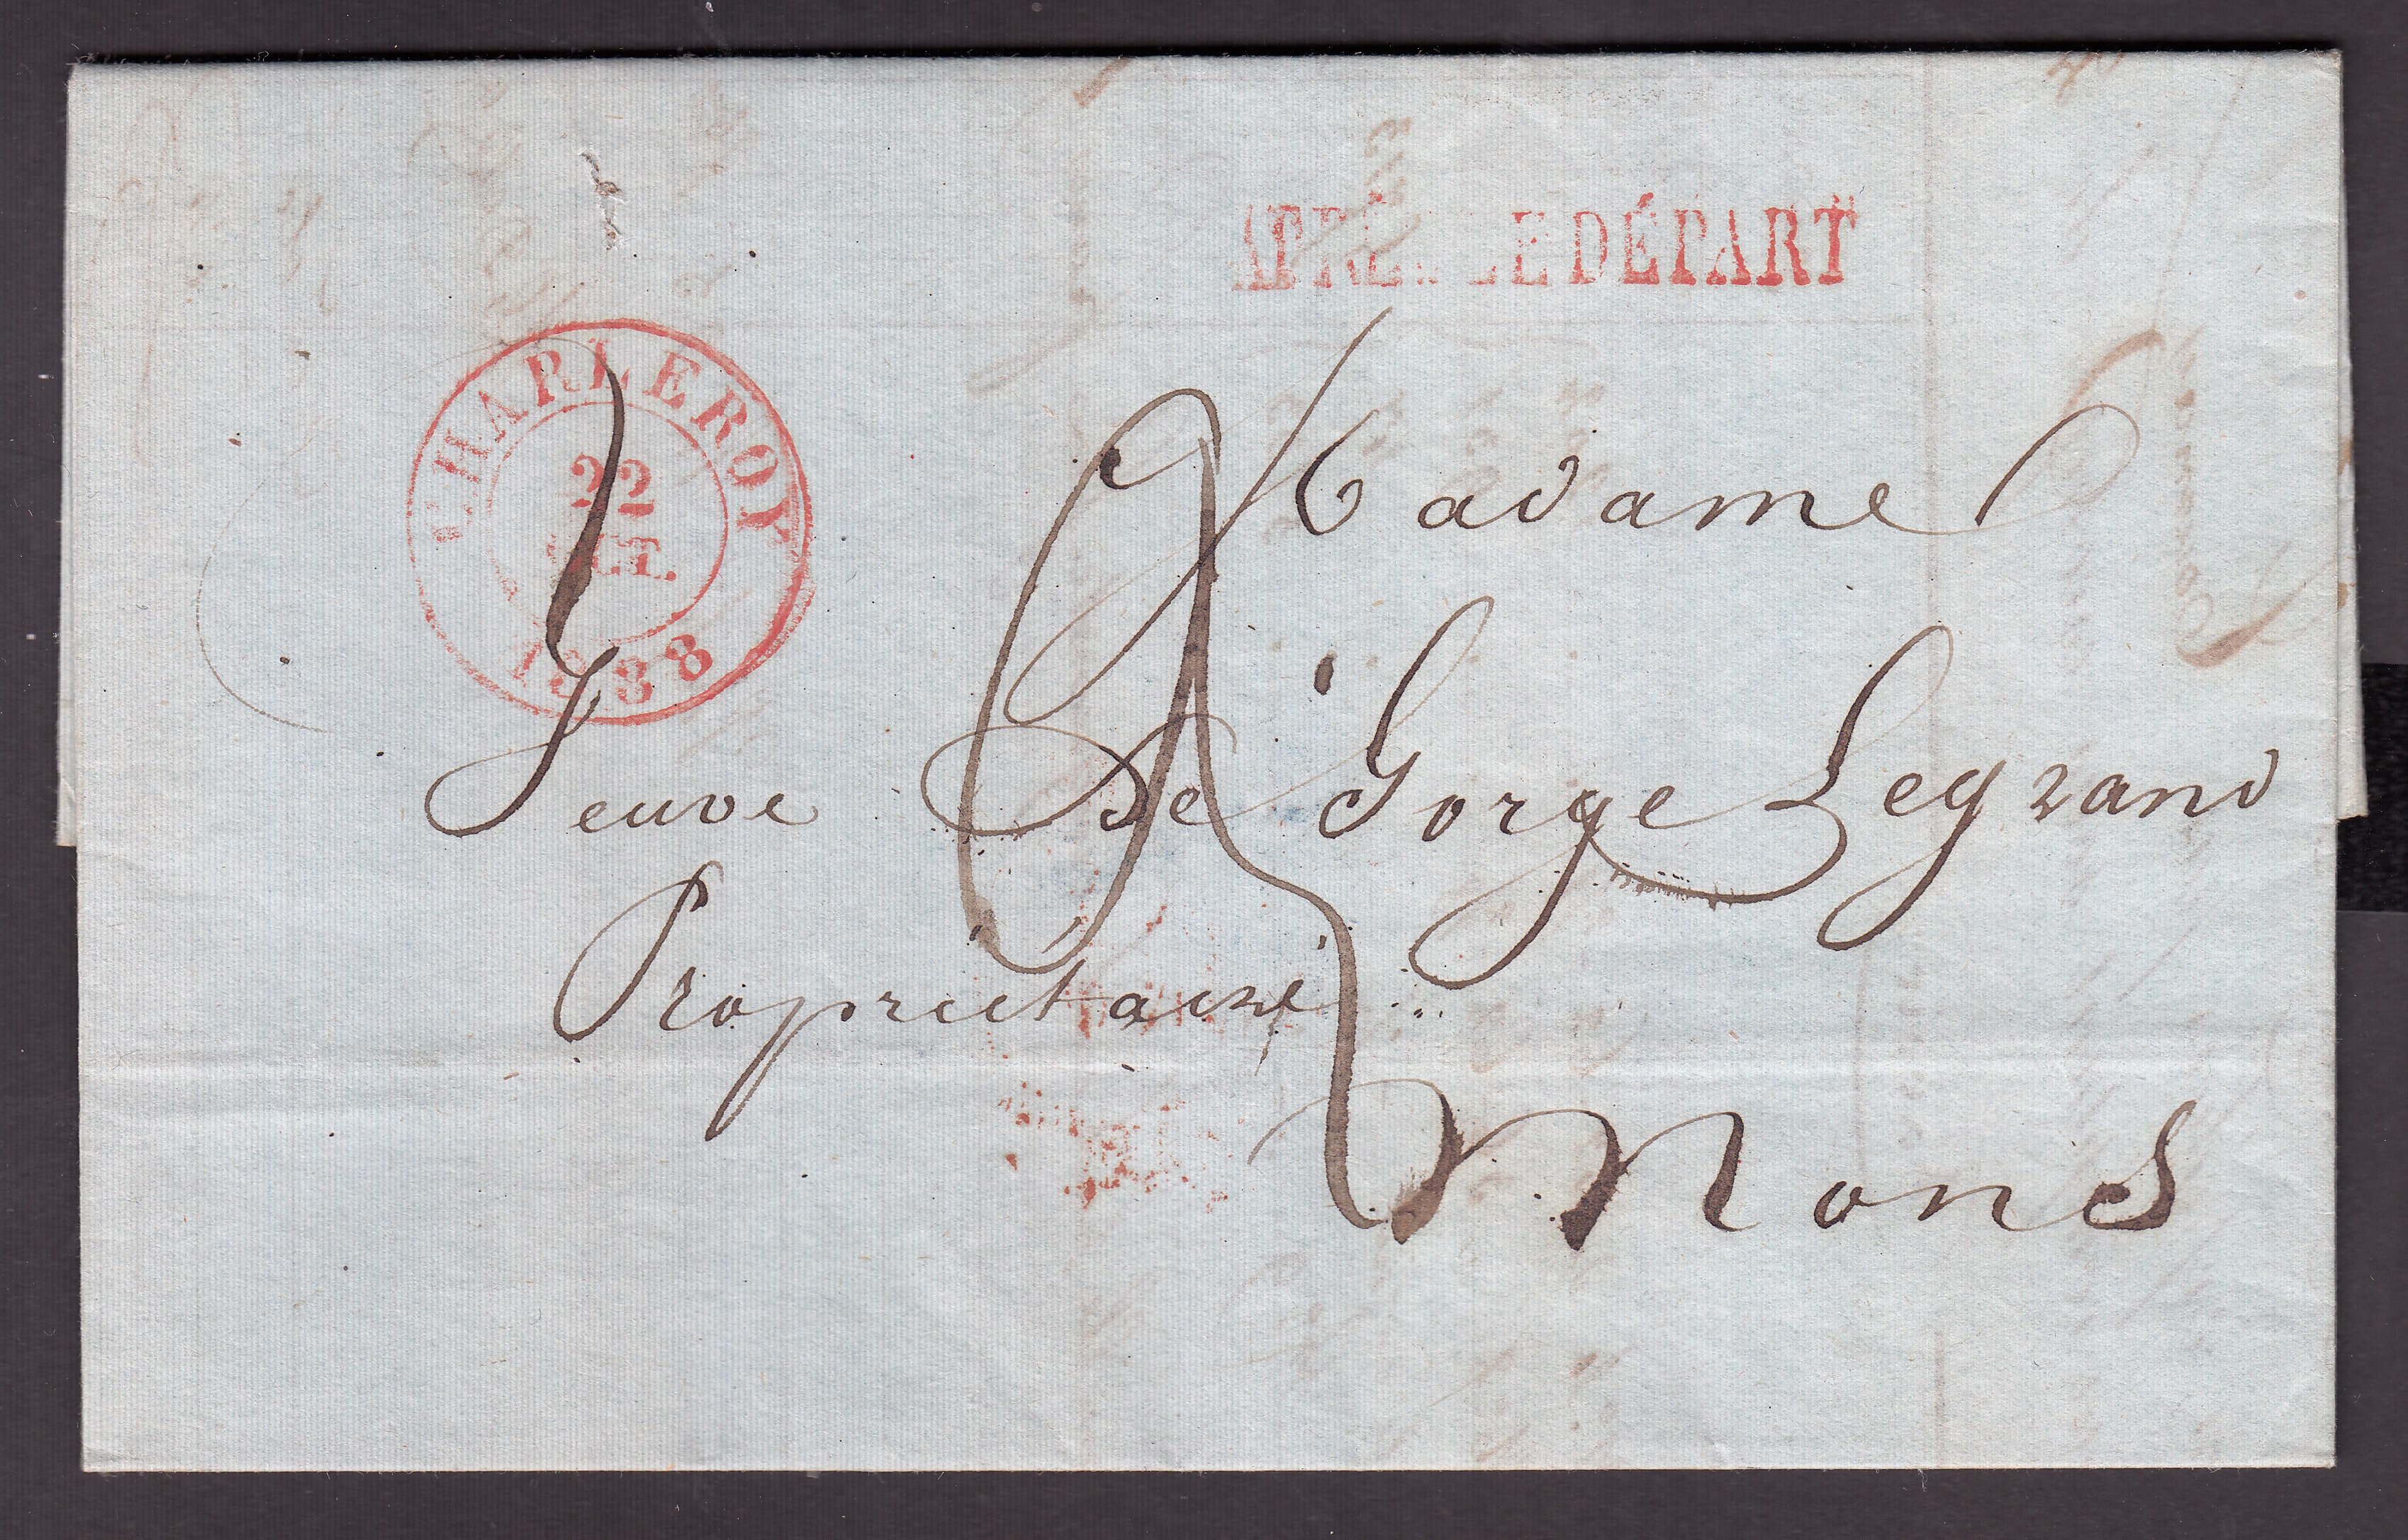 APRÈS LE DÉPART
CHARLEROY
22
OCT.
1838
Madame
Veuve De Gorge Legrand
Propriétaire
Mons